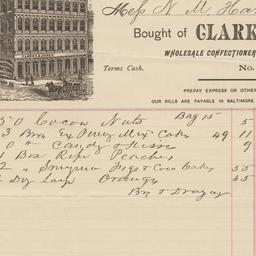 Mess N. M. Ha
Bought of CLARK
WHOLESALE CONFECTIONER
Terms Cash. No.
PREPAY EXPRESS OR OTHER
OUR BILLS ARE PAYABLE IN BALTIMORE
50 Cocoa Nuts Bag 15 5
3 Bxs Ex Penny Mix Cakes 49 11
0 " Candy & Kisses 9
1 Box Ripe Peaches
2 " Smyrna Figs & Coco Cakes 55
2 Doz Large Oranges 35
Bx & Drayag